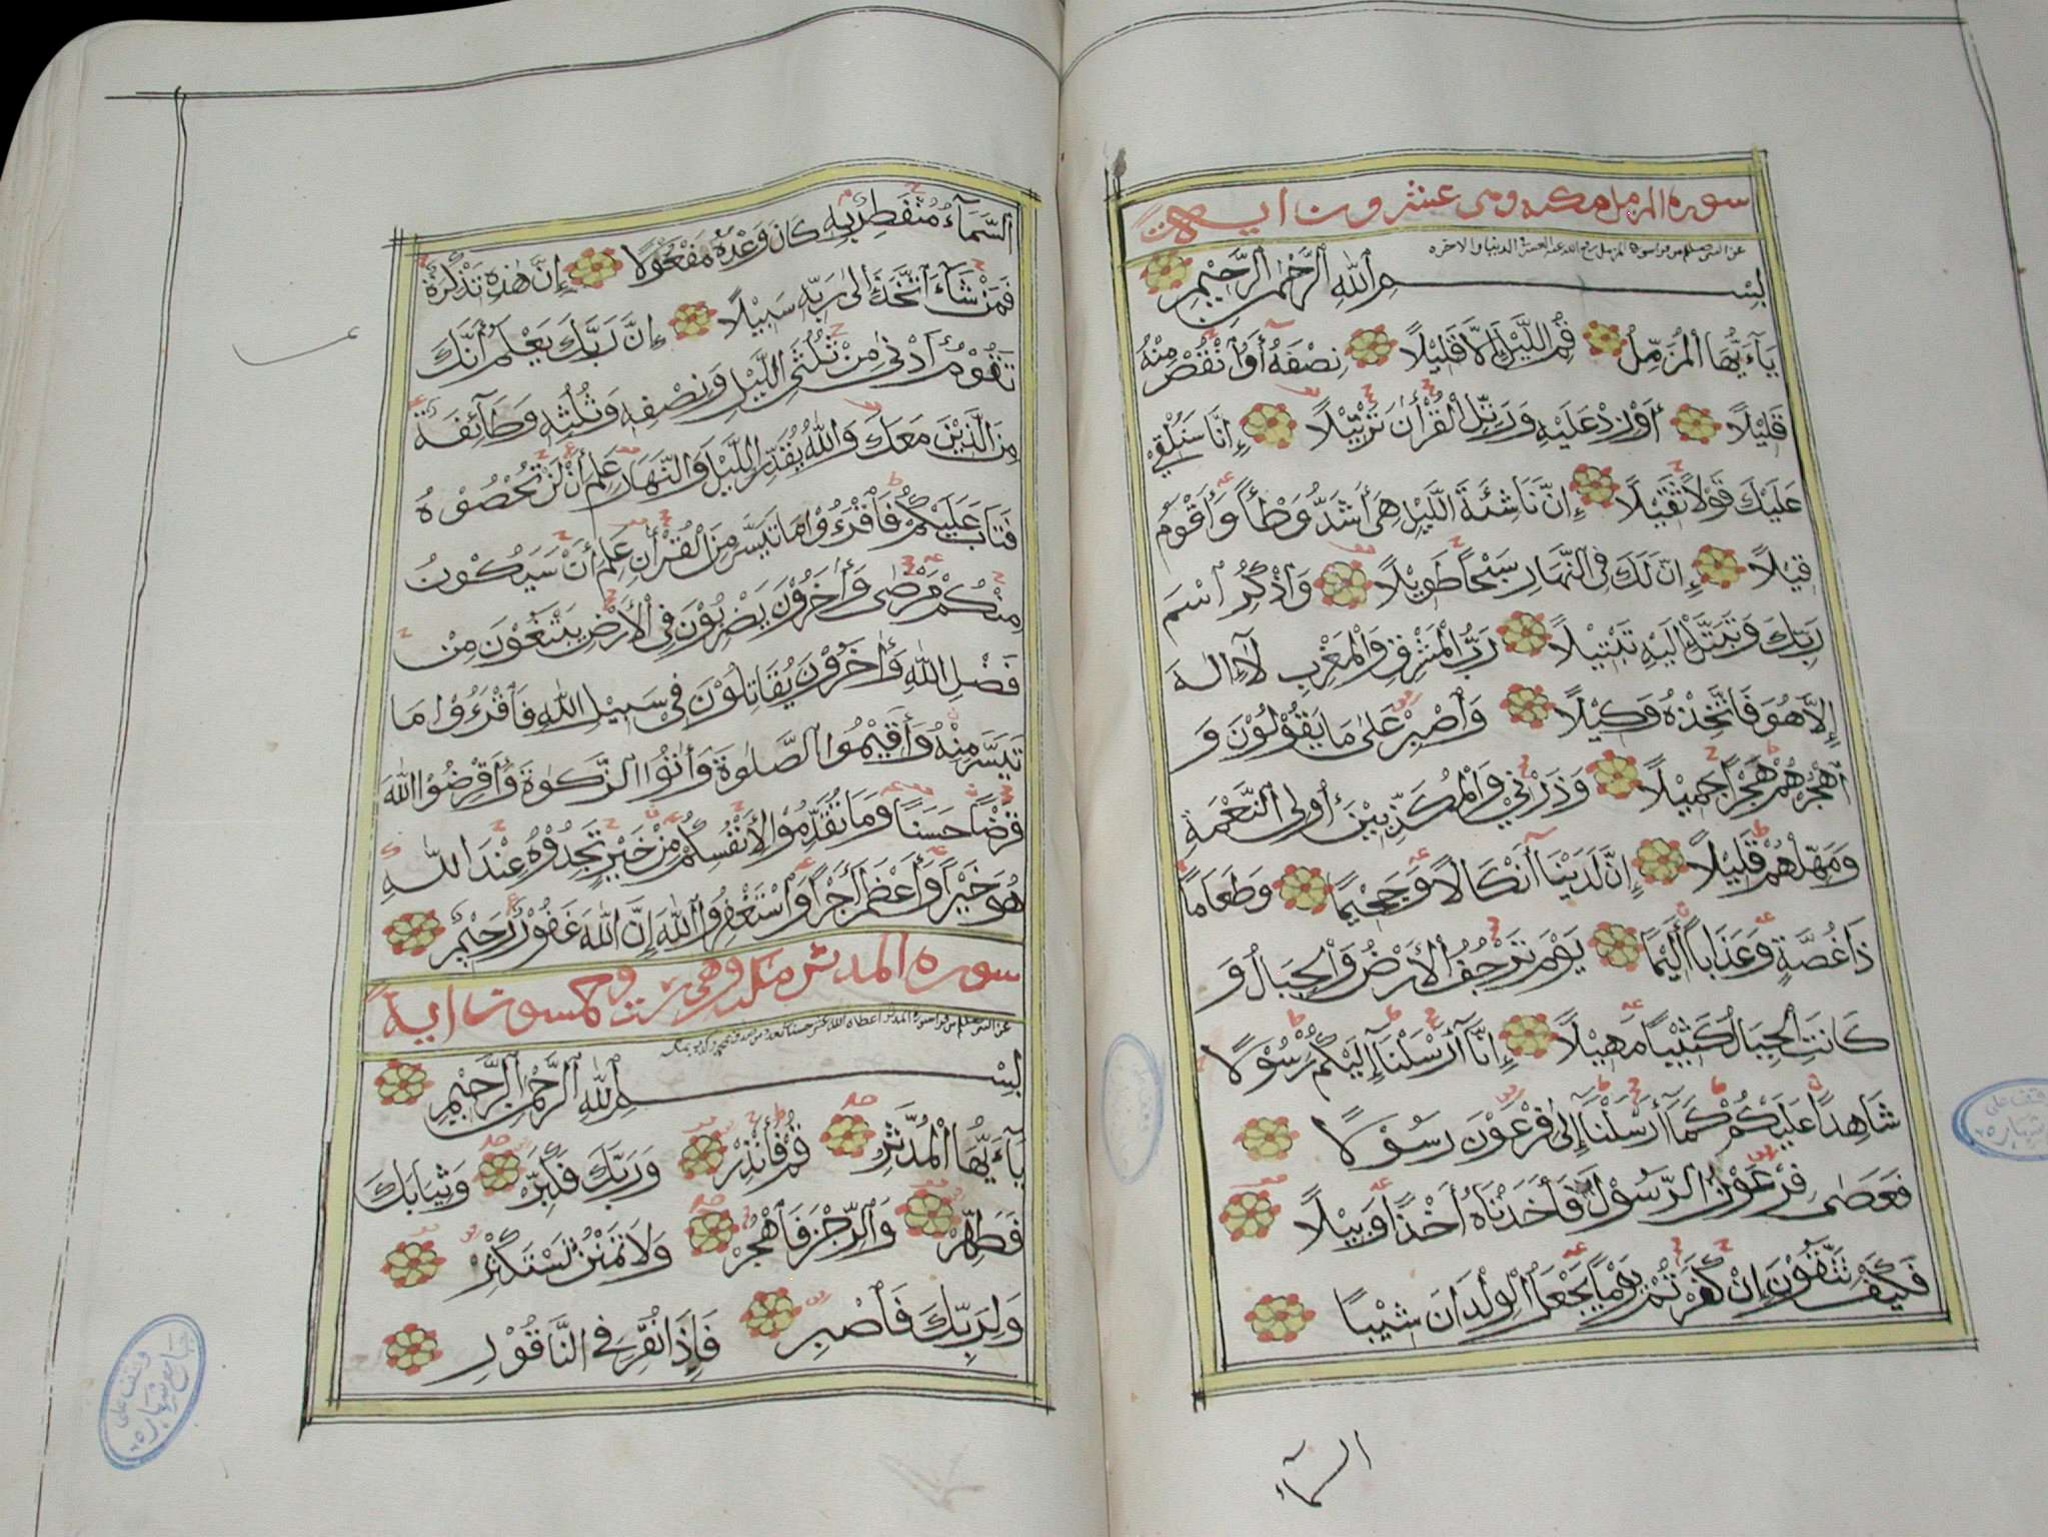 سورة المزمل مكية وهي عشرون اية
عن النبي صلعم من قرا سورة المزمل رفع الله عنه العسر في الدنيا والاخرة
بِسْمِ اللّٰهِ الرَّحْمٰنِ الرَّحِيْمِ
يَآءَيُّهَا ٱلْمُزَّمِّلُ قُمِ اللَّيْلَ إِلاَّ قَلِيْلًا نِصْفَهُ أَوِ ٱنْقُصْ مِنْهُ
قَلِيْلًا أَوْ زِدْ عَلَيْهِ وَرَتِّلِ ٱلْقُرْأٰنَ تَرْتِيْلًا إِنَّا سَنُلْقِيْ
عَلَيْكَ قَوْلًا ثَقِيْلًا إِنَّ نَاشِئَةَ اللَّيْلِ هِيَ أَشَدُّ وَطْأً وَأَقْوَمُ
قِيْلًا إِنَّ لَكَ فِي ٱلنَّهَارِ سَبْحًا طَوِيْلًا وَٱذْكُرِ ٱسْمَ
رَبِّكَ وَتَبَتَّلْ إِلَيْهِ تَبْتِيْلًا رَبُّ الْمَشْرِقِ وَالْمَغْرِبِ لَآ إِلٰهَ
إِلَّا هُوَ فَاتَّخِذْهُ وَكِيْلًا وَٱصْبِرْ عَلٰى مَا يَقُوْلُوْنَ وَ
ٱهْجُرْهُمْ هَجْرًا جَمِيْلًا وَذَرْنِيْ وَالْمُكَذِّبِيْنَ أُولِي ٱلنَّعْمَةِ
وَمَهِّلْهُمْ قَلِيْلًا إِنَّ لَدَيْنَآ أَنْكَالًا وَجَحِيْمًا وَطَعَامًا
ذَا غُصَّةٍ وَعَذَابًا أَلِيْمًا يَوْمَ تَرْجُفُ الْأَرْضُ وَالْجِبَالُ وَ
كَانَتِ الْجِبَالُ كَثِيْبًا مَهِيْلًا إِنَّآ أَرْسَلْنَآ إِلَيْكُمْ رَسُوْلًا
شَاهِدًا عَلَيْكُمْ كَمَآ أَرْسَلْنَآ إِلٰى فِرْعَوْنَ رَسُوْلًا
فَعَصٰى فِرْعَوْنُ الرَّسُوْلَ فَأَخَذْنَاهُ أَخْذًا وَبِيْلًا
فَكَيْفَ تَتَّقُوْنَ إِنْ كَفَرْتُمْ يَوْمًا يَجْعَلُ الْوِلْدَانَ شِيْبًا
السمآء
ٱلسَّمَآءُ مُنْفَطِرٌ بِهِ كَانَ وَعْدُهُ مَفْعُوْلًا إِنَّ هٰذِهِ تَذْكِرَةٌ
فَمَنْ شَآءَ ٱتَّخَذَ إِلٰى رَبِّهِ سَبِيْلًا إِنَّ رَبَّكَ يَعْلَمُ أَنَّكَ
تَقُوْمُ أَدْنٰى مِنْ ثُلُثَيِ اللَّيْلِ وَنِصْفِهِ وَثُلُثِهِ وَطَآئِفَةٌ
مِنَ الَّذِيْنَ مَعَكَ وَاللّٰهُ يُقَدِّرُ اللَّيْلَ وَالنَّهَارَ عَلِمَ أَنْ لَنْ تُحْصُوْهُ
فَتَابَ عَلَيْكُمْ فَٱقْرَءُوْا مَا تَيَسَّرَ مِنَ الْقُرْأٰنِ عَلِمَ أَنْ سَيَكُوْنُ
مِنْكُمْ مَرْضٰى وَأٰخَرُوْنَ يَضْرِبُوْنَ فِي الْأَرْضِ يَبْتَغُوْنَ مِنْ
فَضْلِ اللّٰهِ وَأٰخَرُوْنَ يُقَاتِلُوْنَ فِيْ سَبِيْلِ اللّٰهِ فَٱقْرَءُوْا مَا
تَيَسَّرَ مِنْهُ وَأَقِيْمُوا الصَّلٰوةَ وَأٰتُوا الزَّكٰوةَ وَأَقْرِضُوا اللّٰهَ
قَرْضًا حَسَنًا وَمَا تُقَدِّمُوْا لِأَنْفُسِكُمْ مِنْ خَيْرٍ تَجِدُوْهُ عِنْدَ اللّٰهِ
هُوَ خَيْرًا وَأَعْظَمَ أَجْرًا وَٱسْتَغْفِرُوا اللّٰهَ إِنَّ اللّٰهَ غَفُوْرٌ رَحِيْمٌ
سورة المدثر مكية وهي ست وخمسون اية
عن النبي صلعم من قرا سورة المدثر اعطاه الله عشر حسنات بعدد من صدق بمحمد وكذب به بمكة
بِسْمِ اللّٰهِ الرَّحْمٰنِ الرَّحِيْمِ
يَآءَيُّهَا الْمُدَّثِّرُ قُمْ فَأَنْذِرْ وَرَبَّكَ فَكَبِّرْ وَثِيَابَكَ
فَطَهِّرْ وَالرِّجْزَ فَٱهْجُرْ وَلَا تَمْنُنْ تَسْتَكْثِرْ
وَلِرَبِّكَ فَٱصْبِرْ فَإِذَا نُقِرَ فِي النَّاقُوْرِ
وقف على
جامع شنهار
٦٥